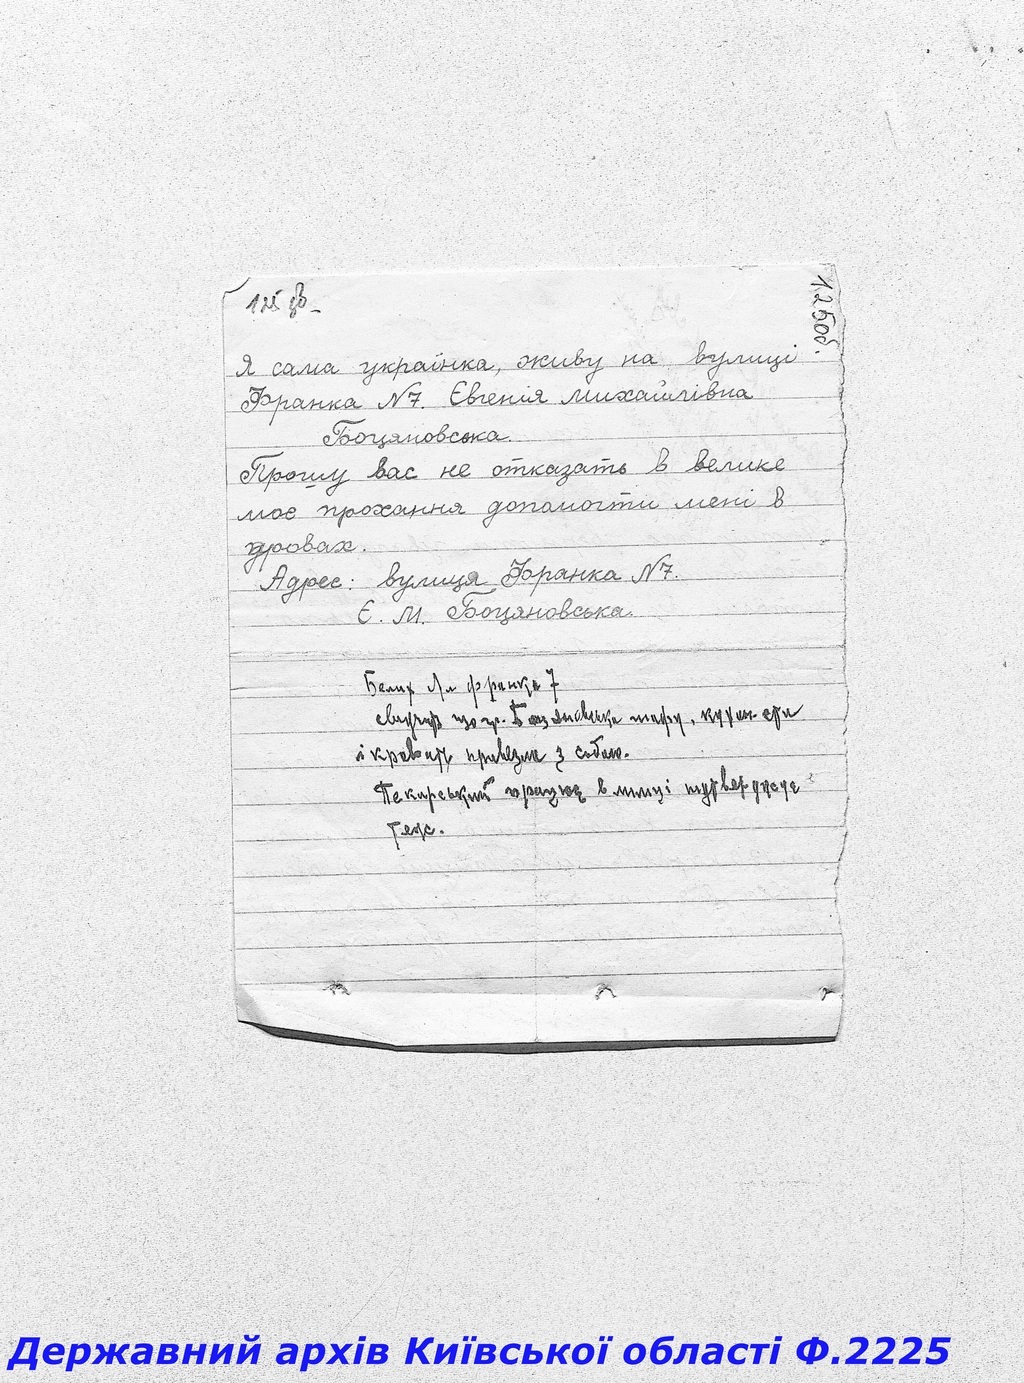 125 зв
125об.
Я сама українка, живу на вулиці
Франка №7. Євгенія Михайлівна
Боцяновська.
Прошу вас не отказать в велике
моє прохання допомогти мені в
дровах.
Адрес: вулиця Франка №7.
Є. М. Боцяновська.
Белих Франка 7
що гр. Боцяновська шафу,
і кровать привезла з собою.
Пекарський працює в
теж.
Державний архів Київської області Ф.2225